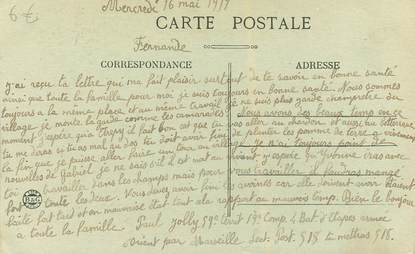 6€
Mercredi 16 mai 1917
CARTE POSTALE
Fernande
CORRESPONDANCE
ADRESSE
j'ai reçu ta lettre qui m'a fait plaisir surtout de te savoir en bonne santé
ainsi que toute la famille pour moi je suis toujours en bonne santé. Nous sommes
toujours à la même place et au même travail je ne suis plus garde champêtre du
village je monte la garde comme les camarades
Nous avons les beaux temps en ce
moment j'espère qu'a il fait bon est que tu
vas aller au
tu me diras si tu as mal au dos tu doit avoir fini
de planter les pommes de terre
la fin que je puisse aller faire un tour au village
Je n'ai toujours point de
nouvelles de Gabriel je ne sais s'il est mort ou
vivant j'espère qu' Yvonne iras avec
toi travailler dans les champs mais pour
vous travailler il faudras manger
fort toute les deux. Vous devez avoir fini les avoines car elle doivent avoir étaient
faite fort tard et en mauvaise état tout cela rapport au mauvais temp. Bien le bonjour
a toute la famille Paul Jolly 59e Territ 19e Comp 4 Bat d'Etapes armée
Orient par Marseille Sect. Post. 518 tu mettras 518.